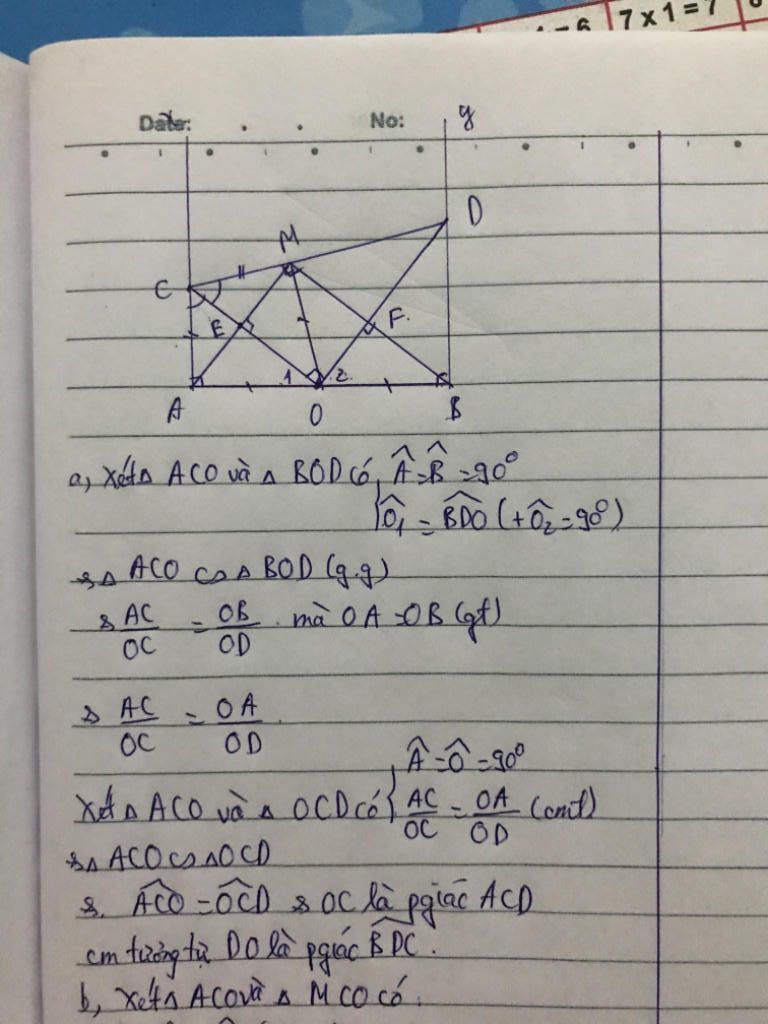 = 6 7 x 1 = 7
Date: No:
y
D
M
C
E F.
1 2
A O B
a, Xét Δ ACO và Δ BOD có { Â = B̂ = 90°
Ô₁ = BDO (+Ô₂ = 90°)
=> Δ ACO ∽ Δ BOD (g.g)
=> AC/OC = OB/OD . mà OA = OB (gt)
=> AC/OC = OA/OD .
Xét Δ ACO và Δ OCD có { Â = Ô = 90°
AC/OC = OA/OD (cmt)
=> Δ ACO ∽ Δ OCD
=> ACO = OCD => OC là pgiác ACD
cm tương tự DO là pgiác BDC .
b, Xét Δ ACO và Δ MCO có .